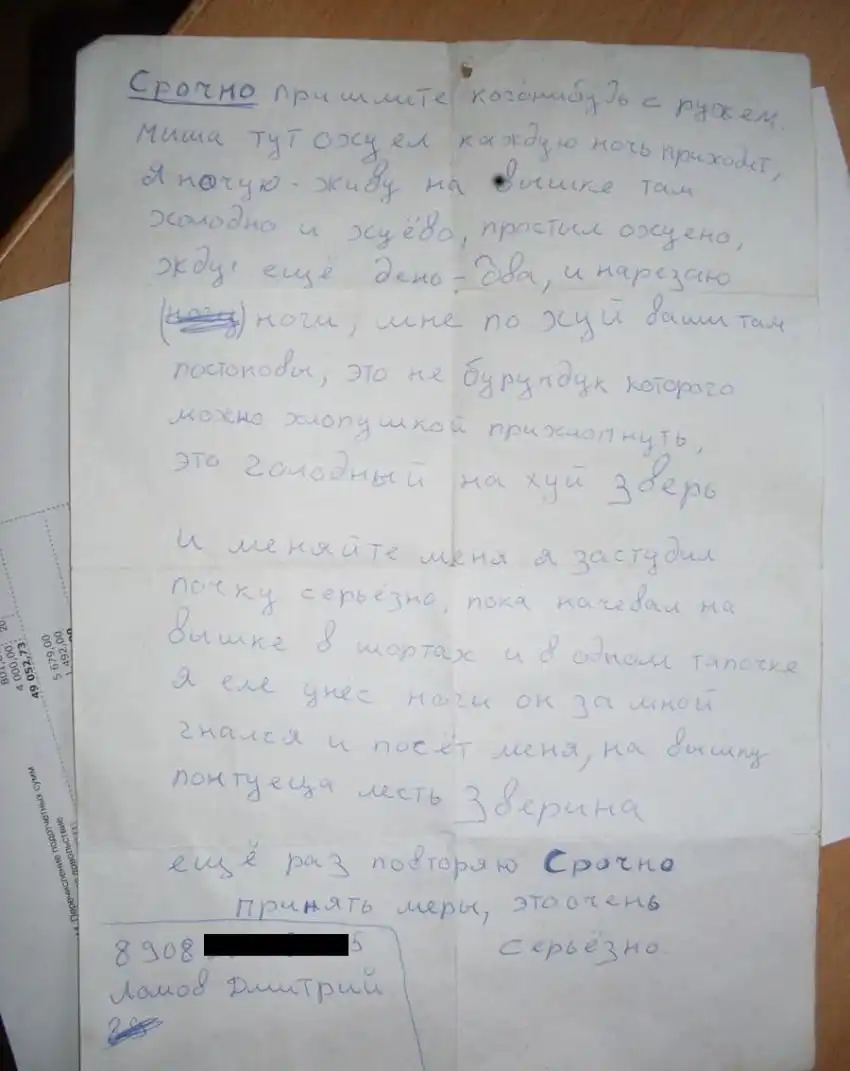 Срочно пришлите когонибудь с ружем.
миша тут охуел каждую ночь приходит,
я ночую - живу на вышке там
холодно и хуёво, простыл охуено,
жду ещё день - два, и нарезаю
ноги, мне по хуй ваши там
постоновы, это не бурундук которого
можно хлопушкой прихлопнуть,
это голодный на хуй зверь
и меняйте меня я застудил
почку серьёзно, пока начевал на
вышке в шортах и в одном тапочке
я еле унёс ноги он за мной
гнался и посёт меня, на вышку
понтуеца лесть зверина
ещё раз повторяю Срочно
принять меры, это очень
серьёзно
8908 5
Ломов Дмитрий
49 052,73
4 000,00
5 679,00
1 492,00